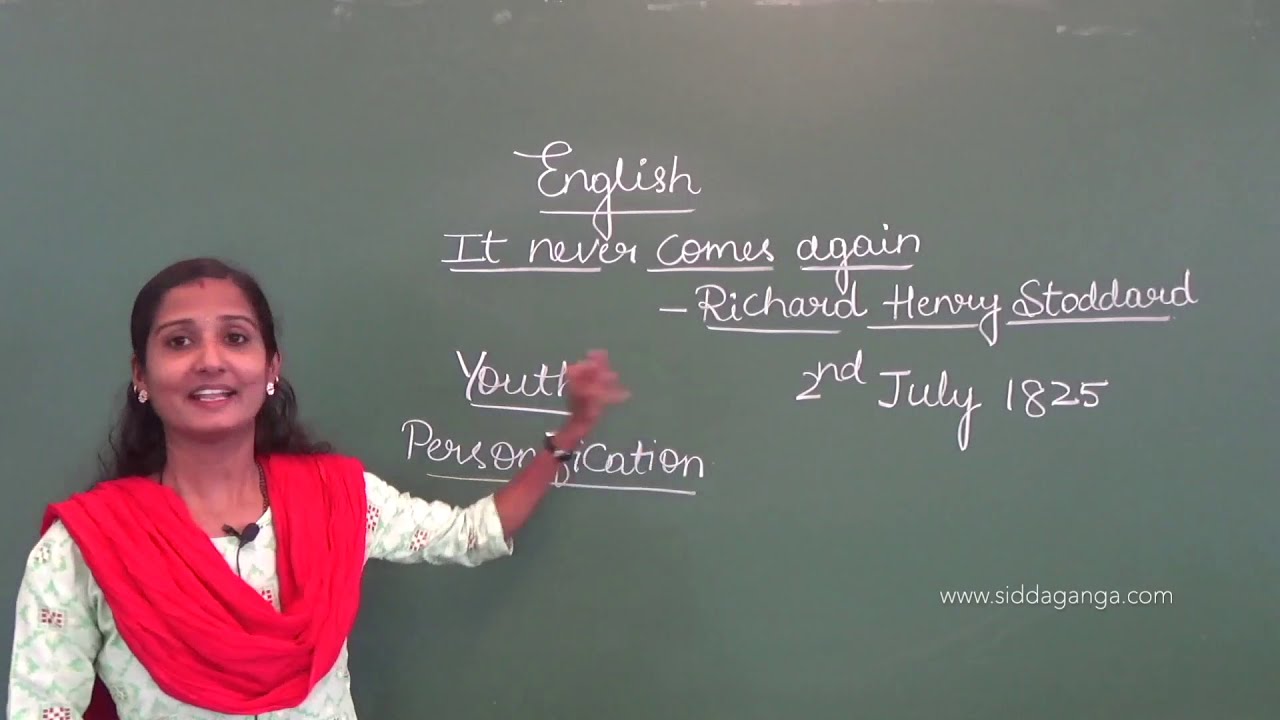 English
It never comes again
- Richard Henry Stoddard
Youth
2nd July 1825
Personification
www.siddaganga.com